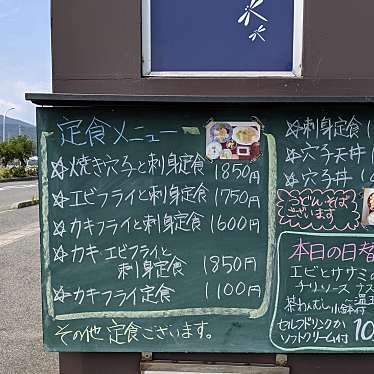 定食メニュー
☆焼き穴子と刺身定食 1850円
☆エビフライと刺身定食 1750円
☆カキフライと刺身定食 1600円
☆カキ エビフライと
刺身定食 1850円
☆カキフライ定食 1100円
その他 定食ございます。
☆刺身定食
☆穴子天丼
☆穴子丼
うどんそば
ございます
本日の日替
エビとササミの
チリソース ナス
茶わんむし 小鉢付
セルフドリンクか
ソフトクリーム付 10